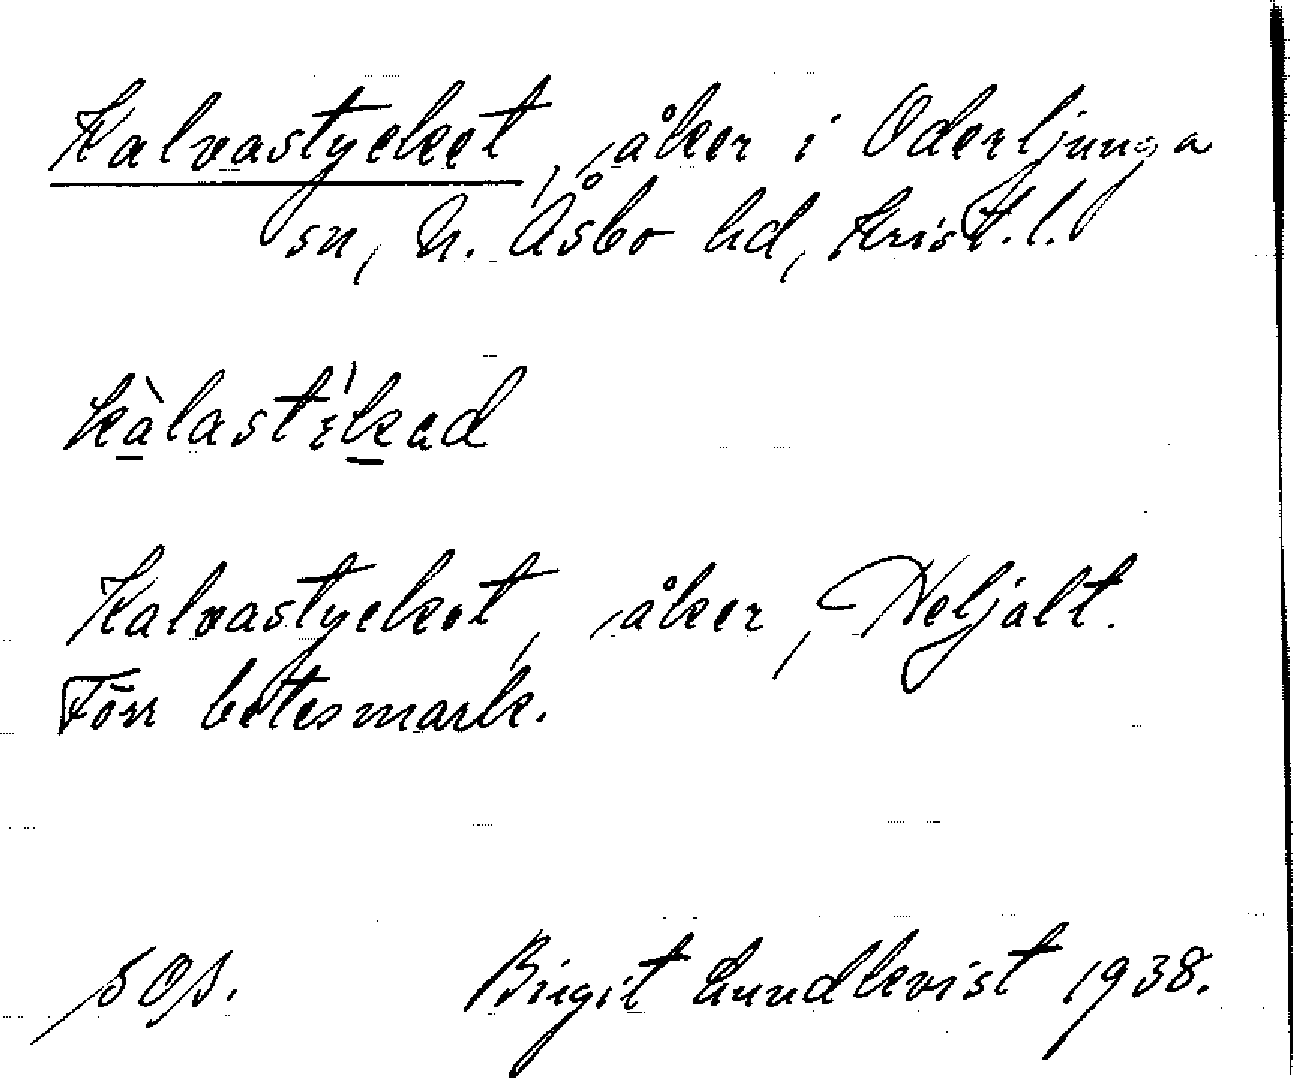 Kalvastycket, åker i Oderljunga
sn, N. Åsbo hd, Krist.l.
Kalvastycket, åker, Heljalt.
Förr betesmark.
Birgit Lundkvist 1938.